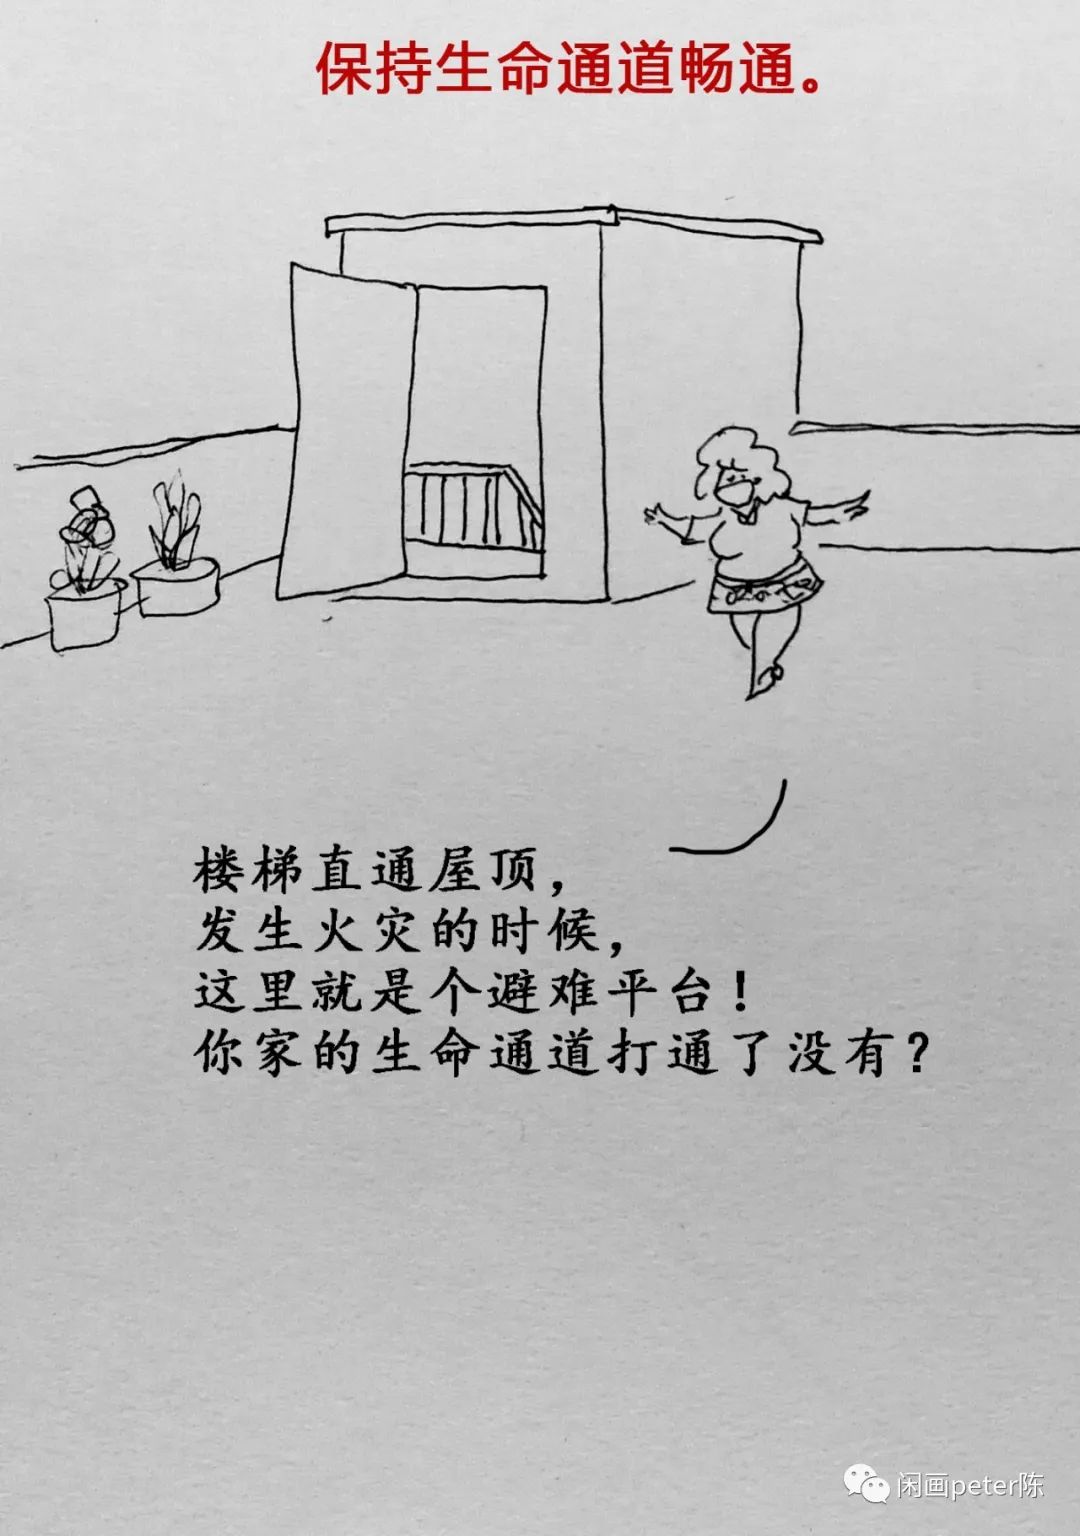 保持生命通道畅通。
楼梯直通屋顶，
发生火灾的时候，
这里就是个避难平台！
你家的生命通道打通了没有？
闲画peter陈